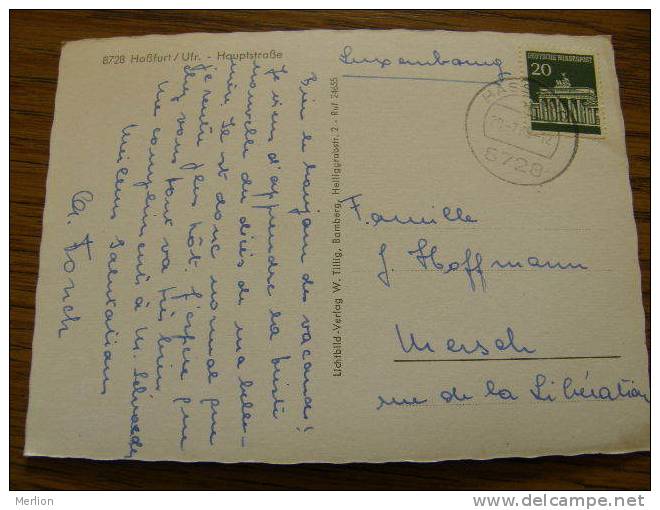 8728 Haßfurt / Ufr. - Hauptstraße
Luxembourg
DEUTSCHE BUNDESPOST
20
HASS
8728
Bien le bonjour des vacances!
Je viens d'apprendre la triste
nouvelle du décès de ma belle-
mère. Il est donc normal que
je rentre plus tôt. J'espère que
chez vous tout va très bien.
Mes compliments à M. Schroeder
Meilleures salutations
G. Fonck
Lichtbild-Verlag W. Tillig, Bamberg, Heiliggrabstr. 2 - Ruf 24655
Famille
J. Hoffmann
Mersch
rue de la Libération
Merlion
http://www.delcampe.net